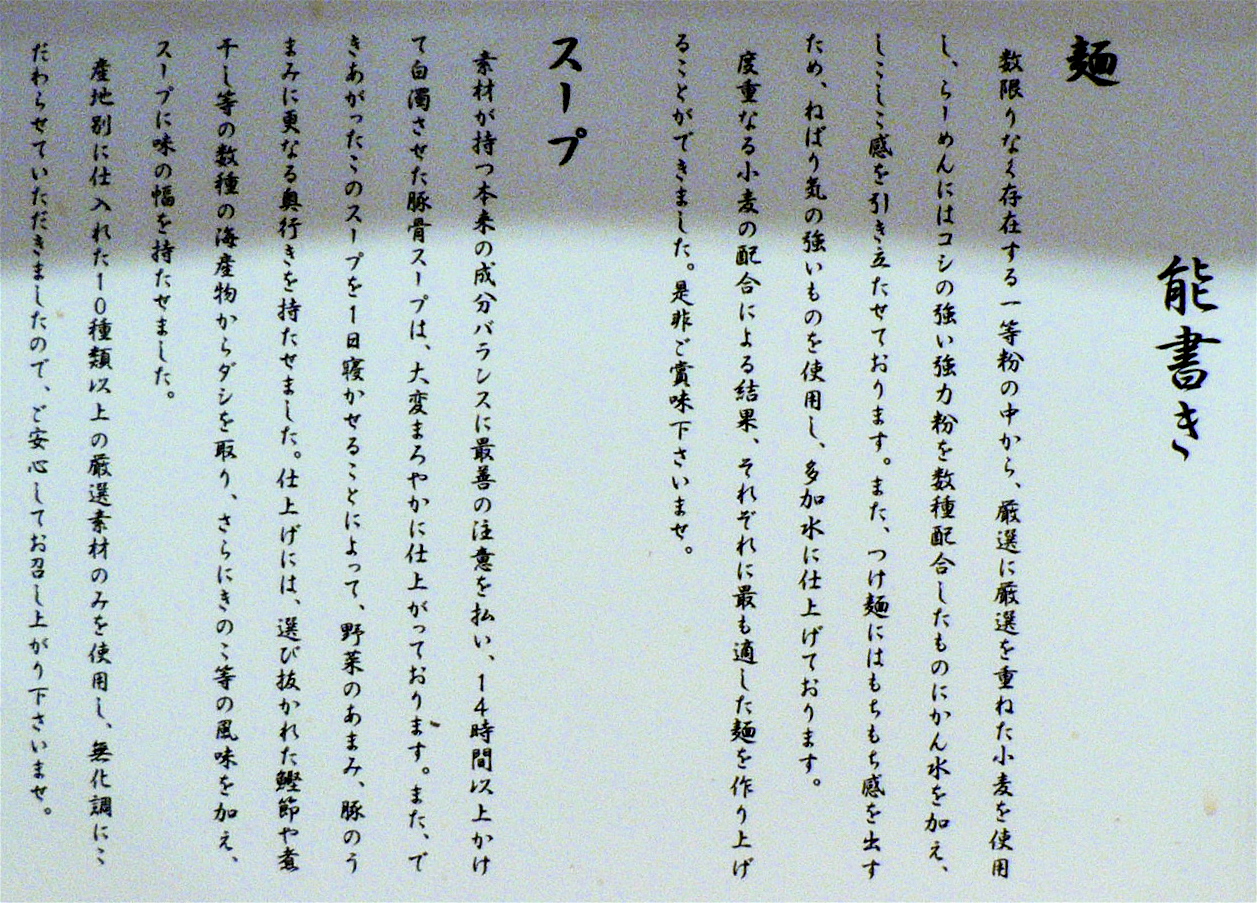 能書き
麺
数限りなく存在する一等粉の中から、厳選に厳選を重ねた小麦を使用
し、らーめんにはコシの強い強力粉を数種配合したものにかん水を加え、
しこしこ感を引き立たせております。また、つけ麺にはもちもち感を出す
ため、ねばり気の強いものを使用し、多加水に仕上げております。
度重なる小麦の配合による結果、それぞれに最も適した麺を作り上げ
ることができました。是非ご賞味下さいませ。
スープ
素材が持つ本来の成分バランスに最善の注意を払い、14時間以上かけ
て白濁させた豚骨スープは、大変まろやかに仕上がっております。また、で
きあがったこのスープを1日寝かせることによって、野菜のあまみ、豚のう
まみに更なる奥行きを持たせました。仕上げには、選び抜かれた鰹節や煮
干し等の数種の海産物からダシを取り、さらにきのこ等の風味を加え、
スープに味の幅を持たせました。
産地別に仕入れた10種類以上の厳選素材のみを使用し、無化調にこ
だわらせていただきましたので、ご安心してお召し上がり下さいませ。